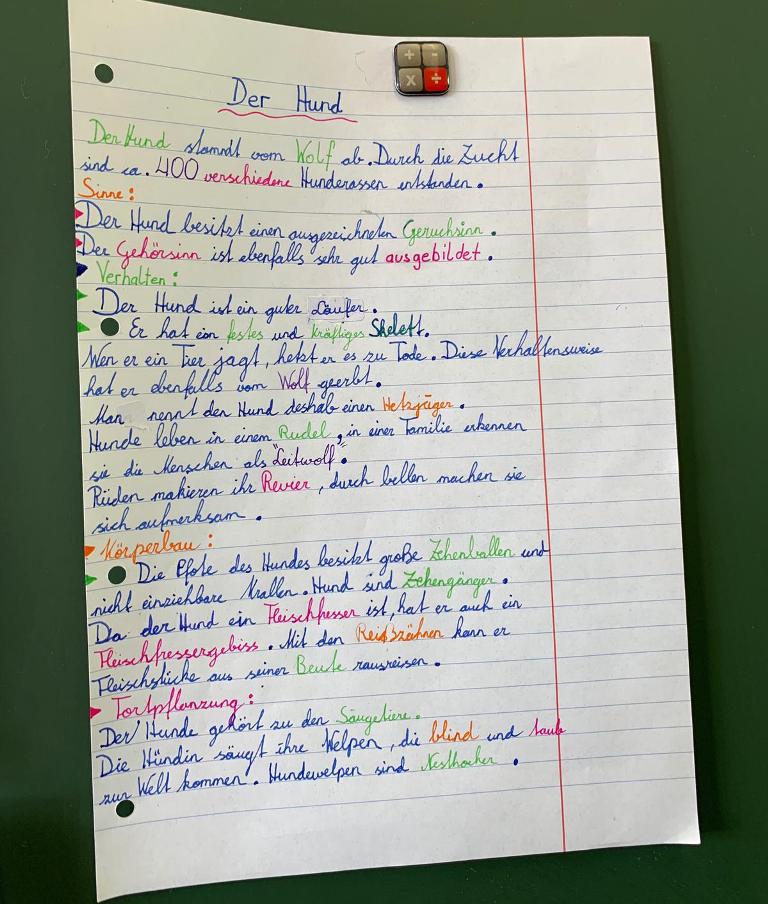 + -
x ÷
Der Hund
Der Hund stammt vom Wolf ab. Durch die Zucht
sind ca. 400 verschiedene Hunderassen entstanden.
Sinne:
Der Hund besitzt einen ausgezeichneten Geruchsinn.
Der Gehörsinn ist ebenfalls sehr gut ausgebildet.
Verhalten:
Der Hund ist ein guter Läufer.
Er hat ein festes und kräftiges Skelett.
Wen er ein Tier jagt, hetzt er es zu Tode. Diese Verhaltensweise
hat er ebenfalls vom Wolf geerbt.
Man nennt den Hund deshalb einen Hetzjäger.
Hunde leben in einem Rudel, in einer Familie erkennen
sie die Menschen als "Leitwolf".
Rüden makieren ihr Revier, durch bellen machen sie
sich aufmerksam.
Körperbau:
Die Pfote des Hundes besitzt große Zehenballen und
nicht einziehbare Krallen. Hund sind Zehengänger.
Da der Hund ein Fleischfresser ist, hat er auch ein
Fleischfressergebiss. Mit den Reißzähnen kann er
Fleischstücke aus seiner Beute rausreisen.
Fortpflanzung:
Der Hunde gehört zu den Säugetiere.
Die Hündin säugt ihre Welpen, die blind und taub
zur Welt kommen. Hundewelpen sind Nesthocker.